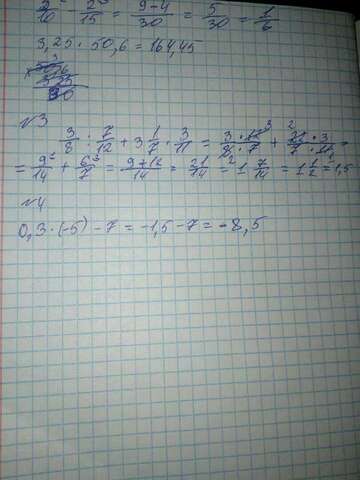 3/10 - 2/15 = 9-4/30 = 5/30 = 1/6
3,25 · 50,6 = 164,45
№3
3/8 : 7/12 + 3 1/7 · 3/11 = 3·12/8·7 + 22·3/7·11 =
= 9/14 + 6/7 = 9+12/14 = 21/14 = 1 7/14 = 1 1/2 = 1,5
№4
0,3 · (-5) - 7 = -1,5 - 7 = -8,5